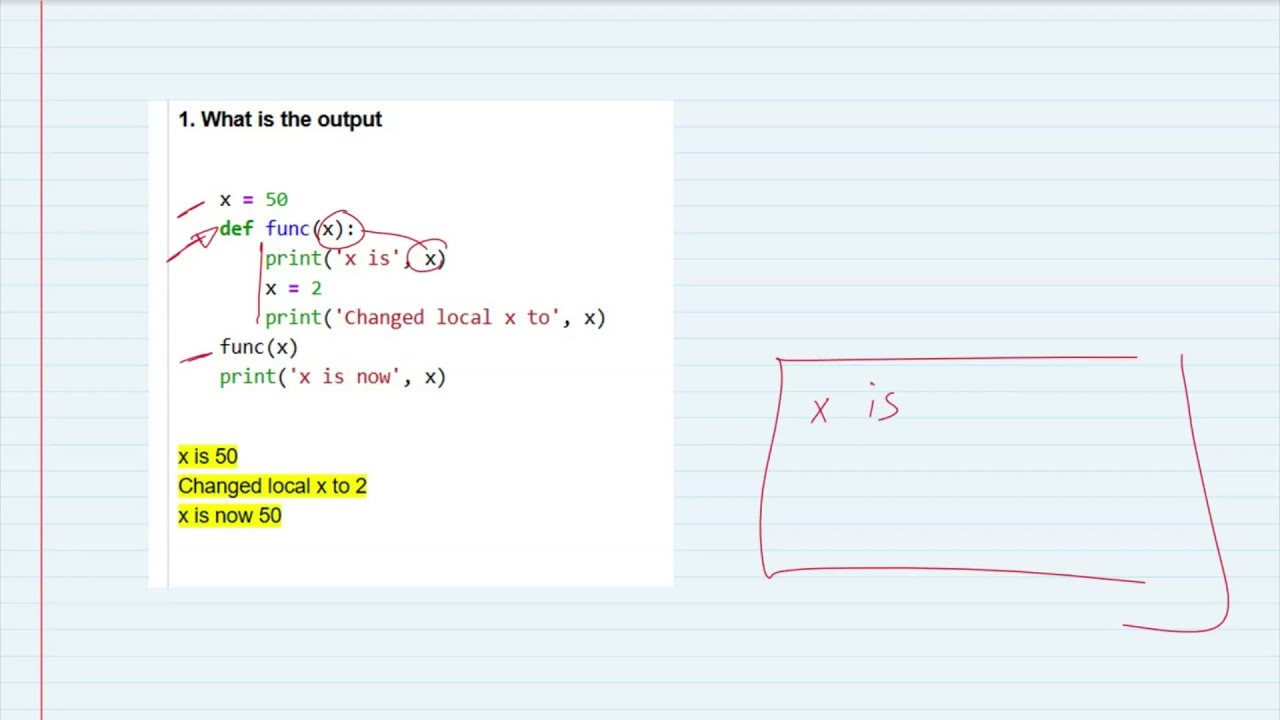 1. What is the output
x = 50
def func(x):
print('x is', x)
x = 2
print('Changed local x to', x)
func(x)
print('x is now', x)
x is 50
Changed local x to 2
x is now 50
x is